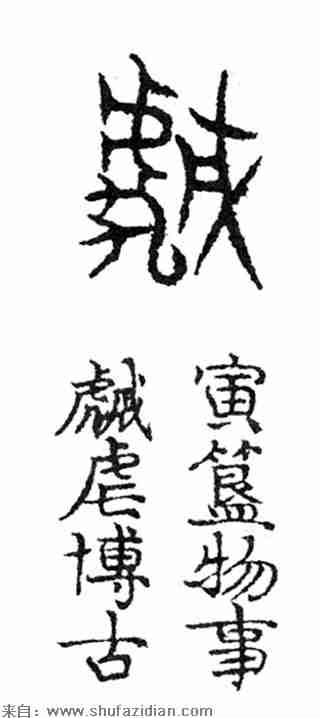 寅簋物事
虐博古
来自：www.shufazidian.com